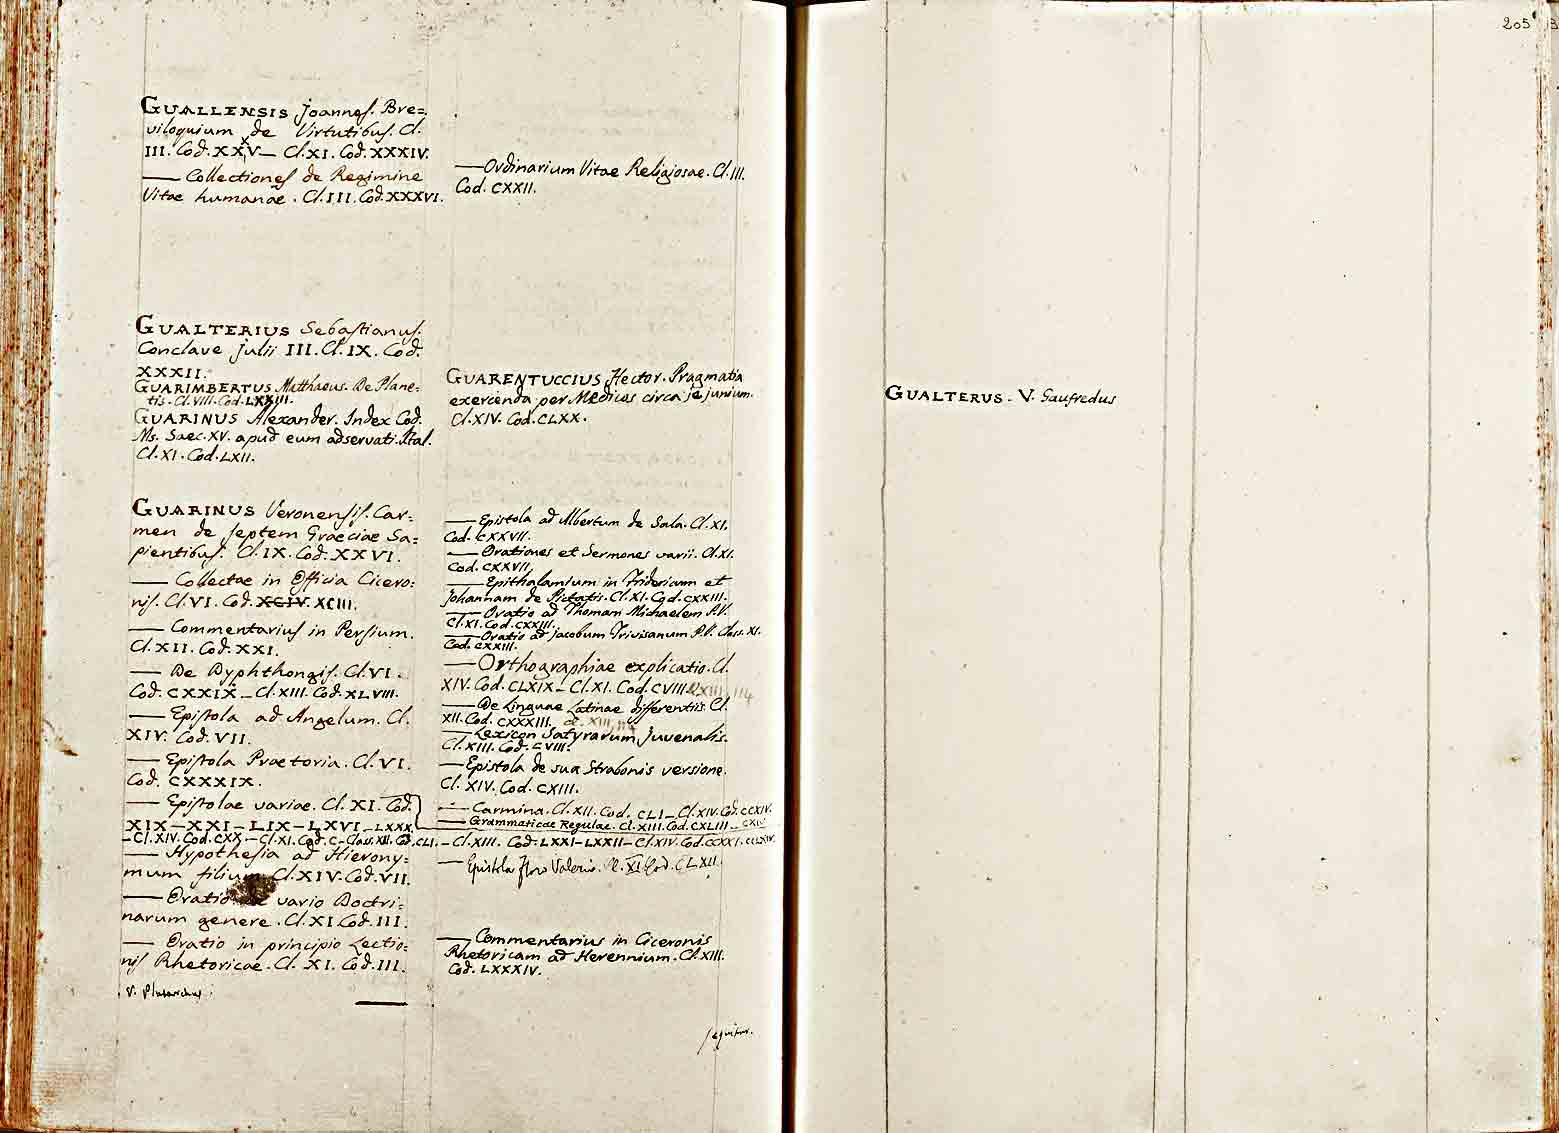 GUALLENSIS Joannes. Bre=
viloquium de Virtutibus. Cl.
III. Cod. XXV — Cl. XI. Cod. XXXIV.
— Collectiones de Regimine
Vitae humanae. Cl. III. Cod. XXXVI.
GUALTERIUS Sebastianus.
Conclave Julii III. Cl. IX. Cod.
XXXII.
GUARIMBERTUS Matthaeus. De Plane=
tis. Cl. VIII. Cod. LXXIII.
GUARINUS Alexander. Index Cod.
Ms. Saec. XV. apud eum adservati. Ital.
Cl. XI. Cod. LXII.
GUARINUS Veronensis. Car=
men de septem Graeciae Sa=
pientibus. Cl. IX. Cod. XXVI.
— Collectae in Officia Cicero=
nis. Cl. VI. Cod. XCIV. XCIII.
— Commentarius in Persium.
Cl. XII. Cod. XXI.
— De Dyphthongis. Cl. VI.
Cod. CXXIX — Cl. XIII. Cod. XLVIII.
— Epistola ad Angelum. Cl.
XIV. Cod. VII.
— Epistola Praetoria. Cl. VI.
Cod. CXXXIX.
— Epistolae variae. Cl. XI. Cod.
XIX — XXI — LIX — LXVI — LXXX
— Cl. XIV. Cod. CXX — Cl. XI. Cod. C — Class. XII. Cod. CLI. — Cl. XIII. Cod. LXXI — LXXII — Cl. XIV. Cod. CCXXI. CCLXIV.
— Hypothesia ad Hierony=
mum filium. Cl. XIV. Cod. VII.
— Oratio vario Doctri=
narum genere. Cl. XI. Cod. III.
— Oratio in principio Lectio=
nis Rhetoricae. Cl. XI. Cod. III.
V. Plutarchus
— Ordinarium Vitae Religiosae. Cl. III.
Cod. CXXII.
GUARENTUCCIUS Hector. Pragmatia
exercenda per Medicos circa jejunium.
Cl. XIV. Cod. CLXX.
— Epistola ad Albertum de Sala. Cl. XI.
Cod. CXXVII.
— Orationes et Sermones varii. Cl. XI.
Cod. CXXVII.
— Epithalamium in Fridericum et
Johannam de Pietatis. Cl. XI. Cod. CXXIII.
— Oratio ad Thomam Michaelem P.V.
Cl. XI. Cod. CXXIII.
— Oratio ad Jacobum Trivisanum P.V. Class. XI.
Cod. CXXIII.
— Orthographiae explicatio. Cl.
XIV. Cod. CLXIX — Cl. XI. Cod. CVIII. Cl. XIII, 114
— De Linguae Latinae differentiis. Cl.
XII. Cod. CXXXIII. cl. XIII, 114
— Lexicon Satyrarum Juvenalis.
Cl. XIII. Cod. CVIII.
— Epistola de sua Strabonis versione.
Cl. XIV. Cod. CXIII.
— Carmina. Cl. XII. Cod. CLI — Cl. XIV. Cod. CCXIV.
— Grammaticae Regulae. Cl. XIII. Cod. CXLIII — CXIV
— Epistola Floro Valerio. Cl. XI. Cod. CLXII.
— Commentarius in Ciceronis
Rhetoricam ad Herennium. Cl. XIII.
Cod. LXXXIV.
sequitur.
205
GUALTERUS. V. Gaufredus